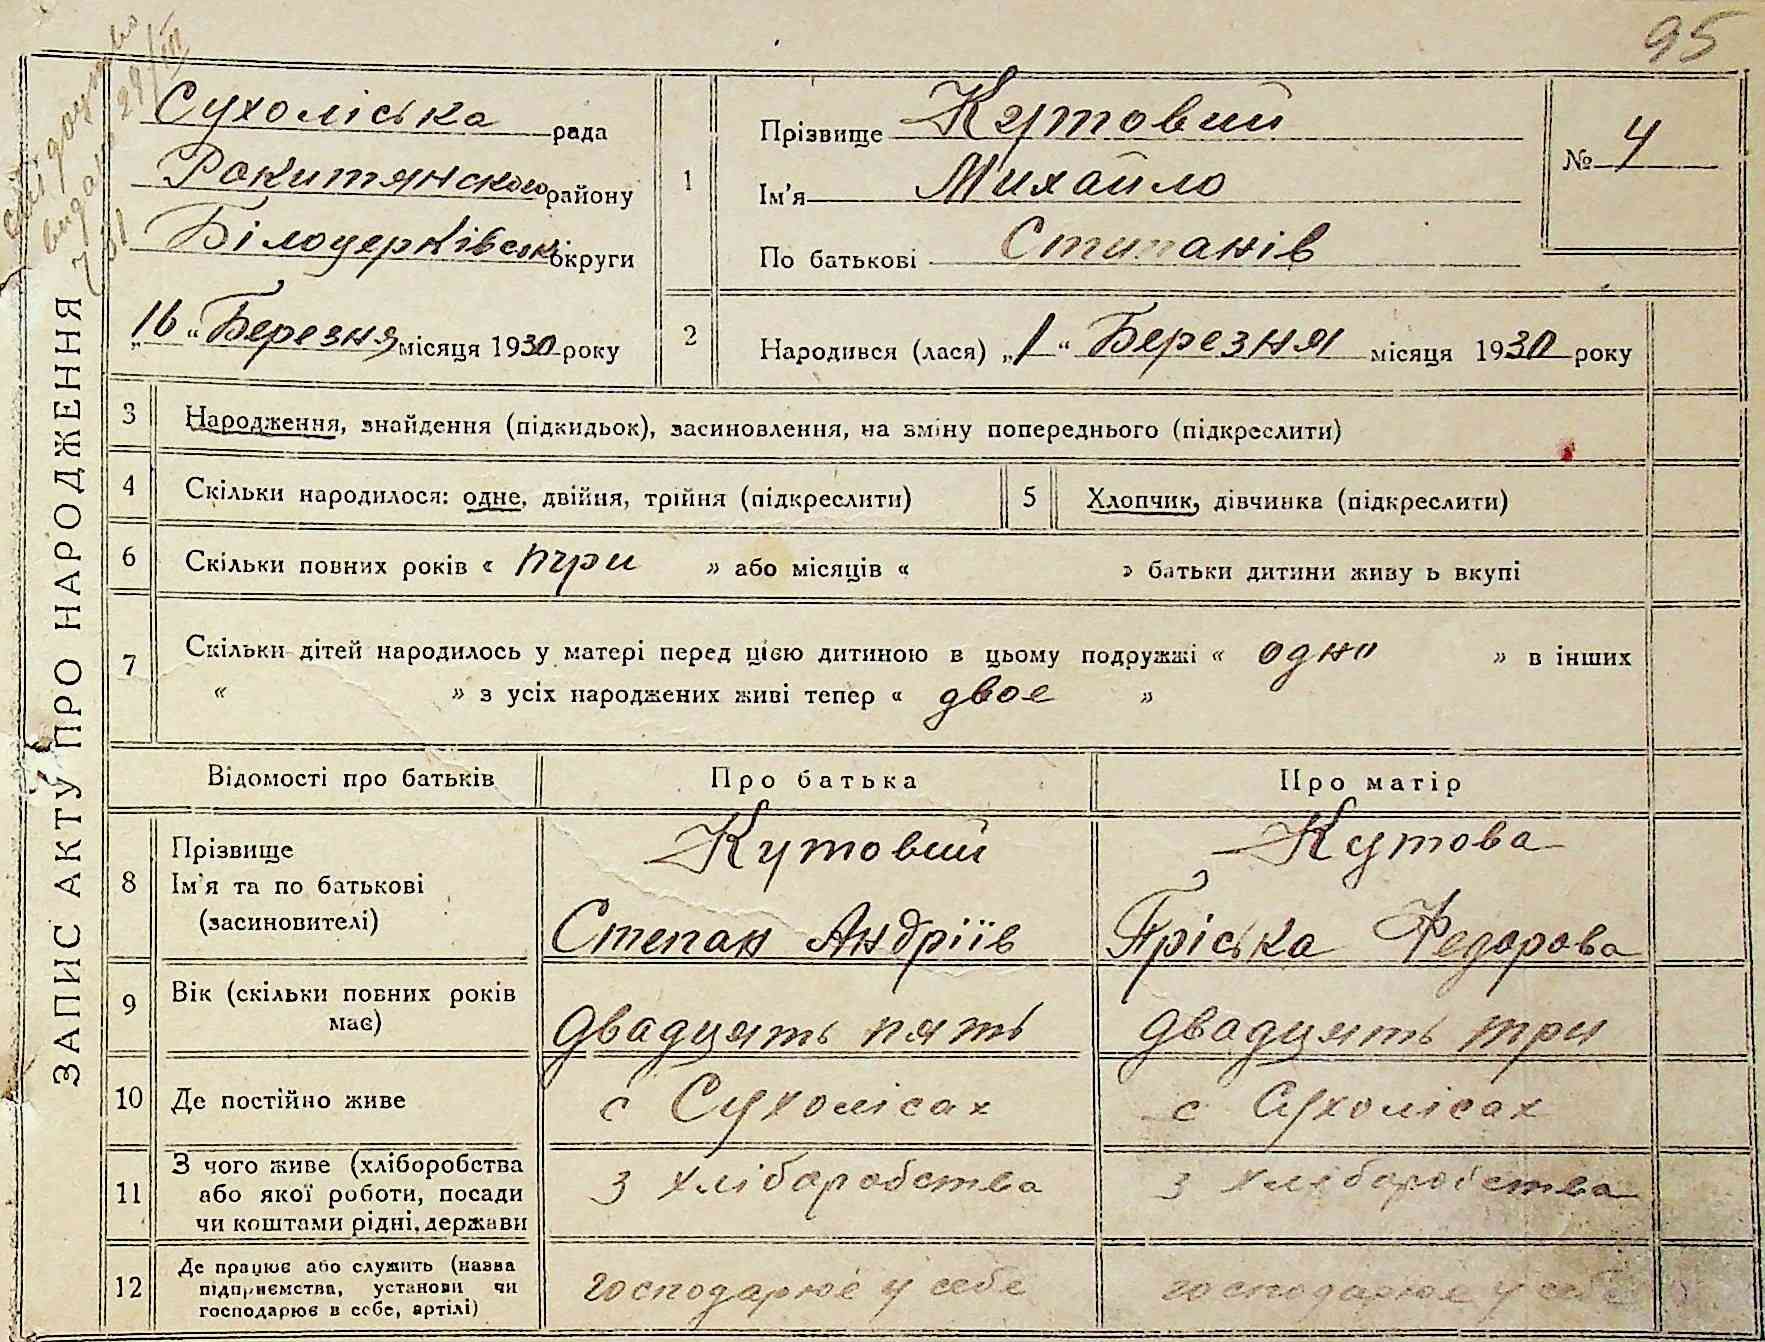 95
видано 29/III
ЗАПИС АКТУ ПРО НАРОДЖЕННЯ
Сухоліська рада
Рокитянского району
Білоцерківськ округи
„16“ Березня місяця 1930 року
1
Прізвище Кутовий
Ім'я Михайло
По батькові Стипанів
№ 4
2
Народився (лася) „1“ Березня місяця 1930 року
3 Народження, знайдення (підкидьок), засиновлення, на зміну попереднього (підкреслити)
4 Скільки народилося: одне, двійня, трійня (підкреслити)
5 Хлопчик, дівчинка (підкреслити)
6 Скільки повних років « три » або місяців « » батьки дитини живу ь вкупі
7 Скільки дітей народилось у матері перед цією дитиною в цьому подружжі « одно » в інших
« » з усіх народжених живі тепер « двое »
Відомості про батьків Про батька Про матір
8 Прізвище Кутовий Кутова
Ім'я та по батькові
(засиновителі) Степан Андріїв Пріська Федорова
9 Вік (скільки повних років
має) двадцять пять двадцять три
10 Де постійно живе с Сухолісах с Сухолісах
11 З чого живе (хліборобства
або якої роботи, посади з хліборобства з хліборобства
чи коштами рідні, держави
12 Де працює або служить (назва
підприємства, установи чи господарює у себе господарює у себе
господарює в себе, артілі)